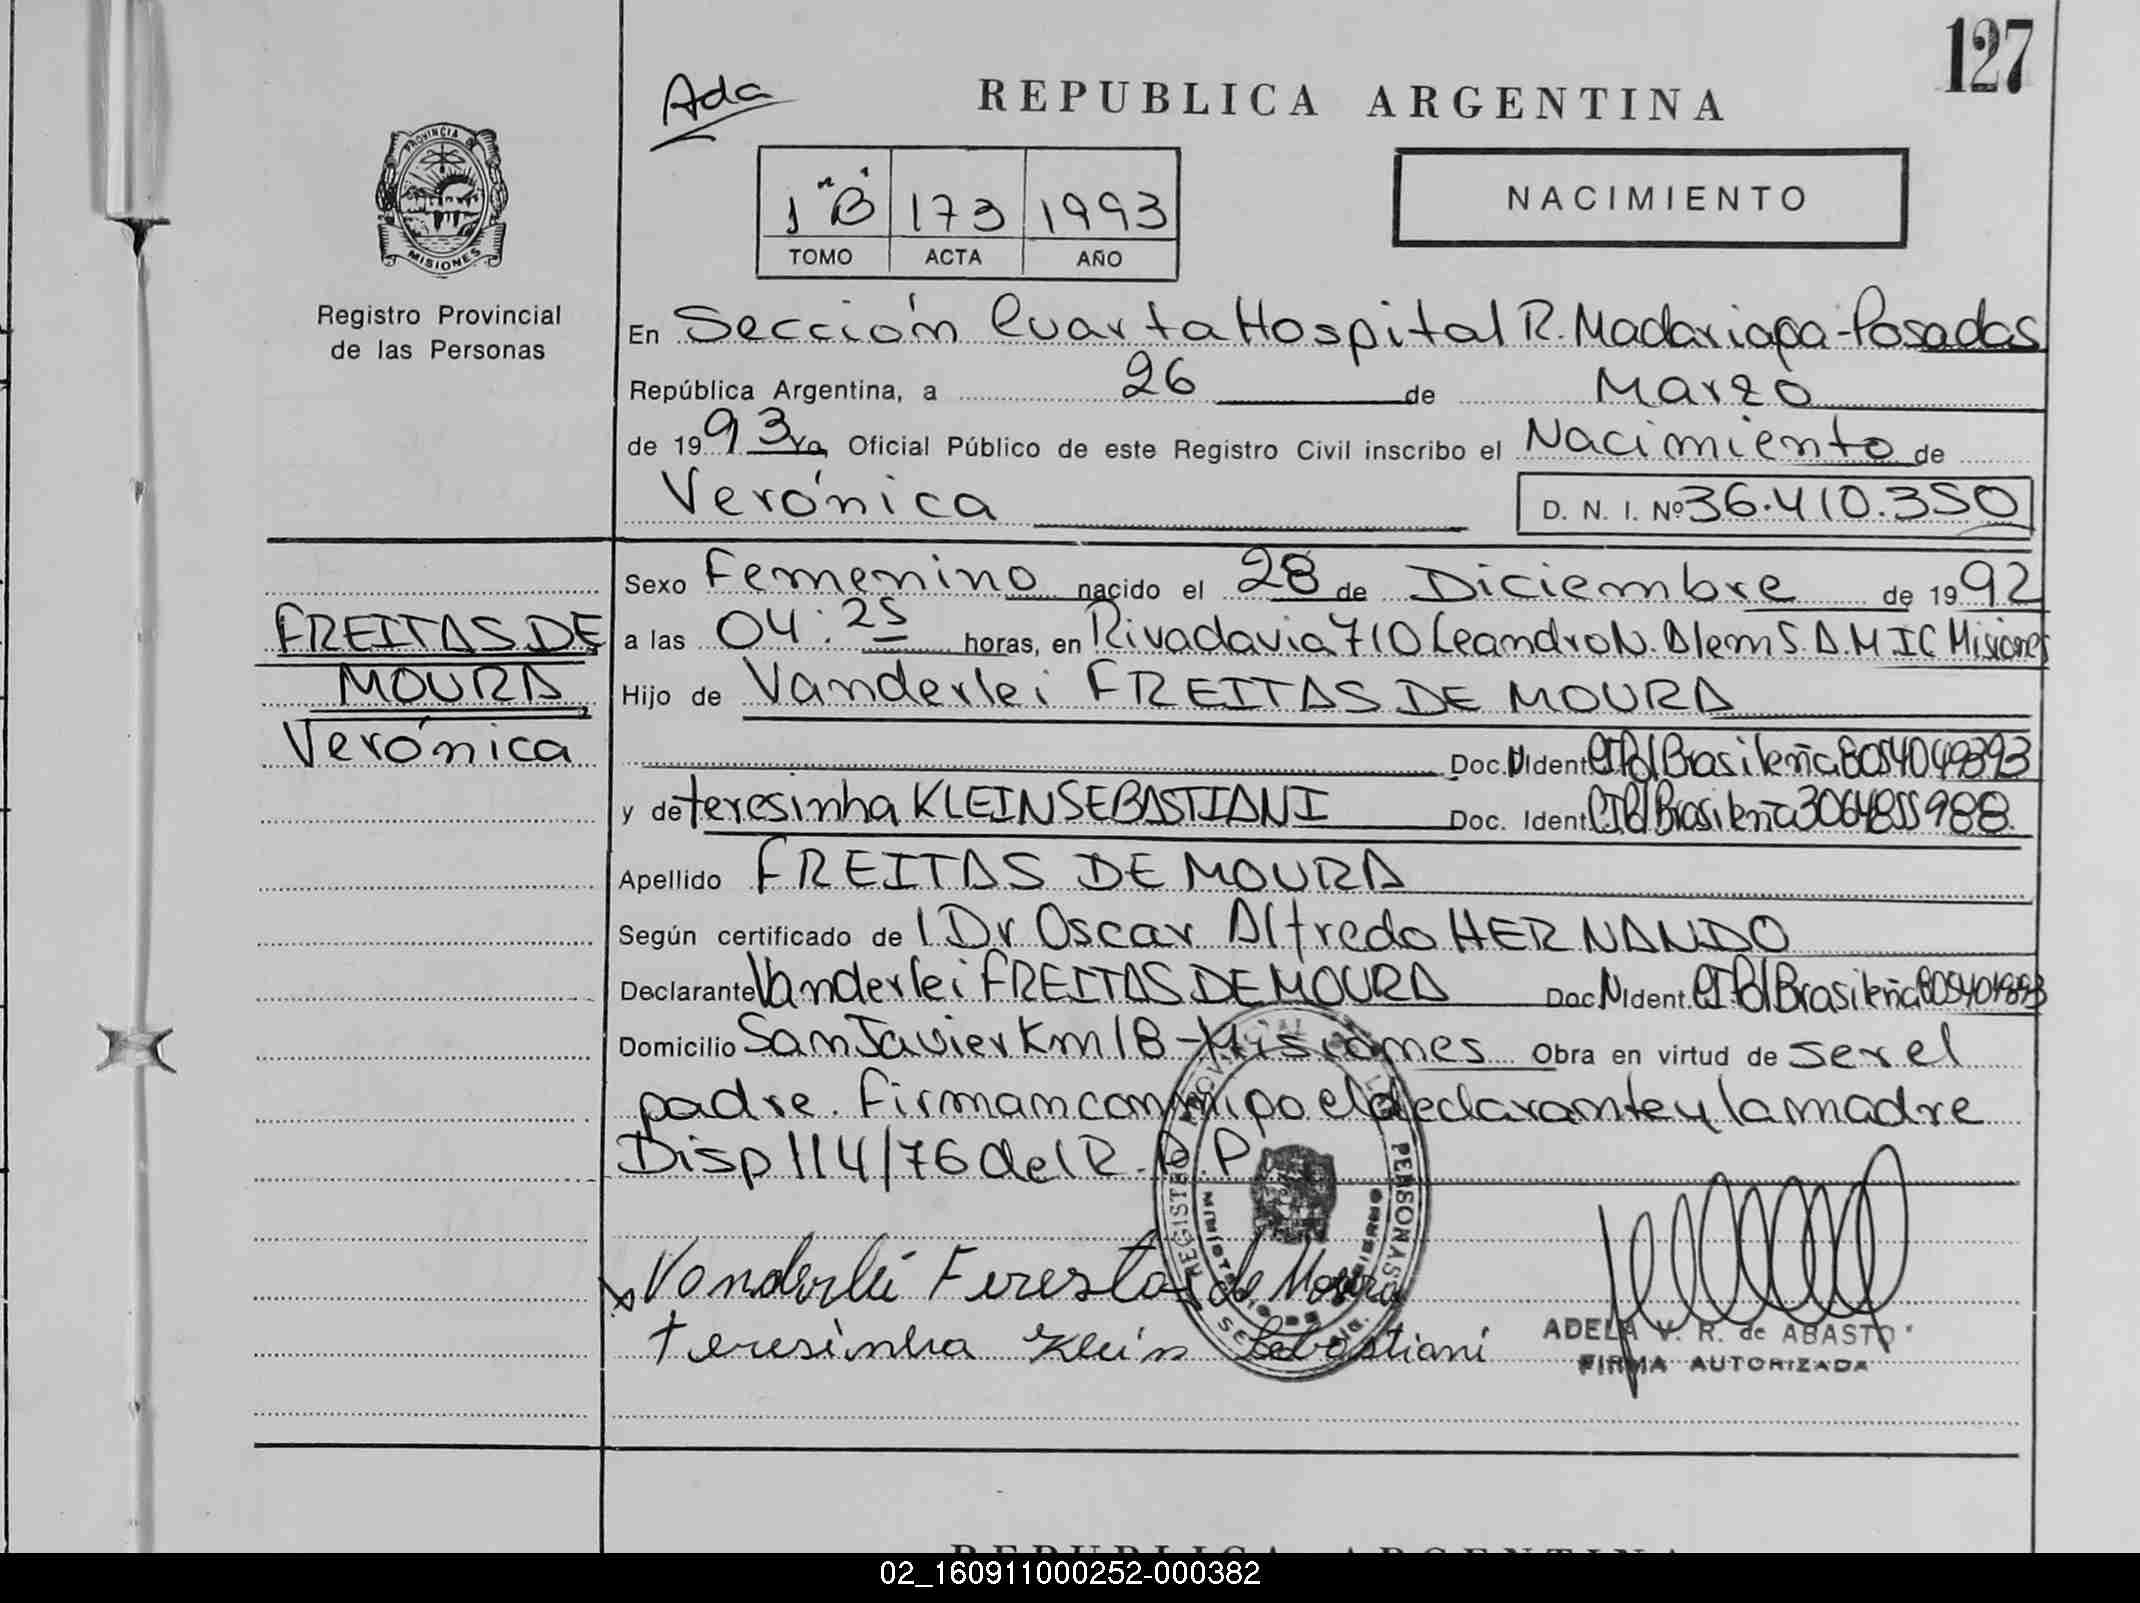 127
Ada
REPUBLICA ARGENTINA
PROVINCIA DE
MISIONES
Registro Provincial
de las Personas
1 "B" 173 1993
TOMO ACTA AÑO
NACIMIENTO
En Sección Cuarta Hospital R. Madariaga - Posadas
República Argentina, a 26 de Marzo
de 1993 Yo, Oficial Público de este Registro Civil inscribo el Nacimiento de
Verónica D. N. I. Nº 36.410.350
Sexo Femenino nacido el 28 de Diciembre de 1992
FREITAS DE
MOURA
Verónica
a las 04:25 horas, en Rivadavia 710 Leandro N. Alem S.A.M.I.C Misiones
Hijo de Vanderlei FREITAS DE MOURA
Doc. N Ident. CIPol Brasileña
y de teresinha KLEIN SEBASTIANI Doc. Ident. CIPol Brasileña 3064855988
Apellido FREITAS DE MOURA
Según certificado de l Dr Oscar Alfredo HERNANDO
Declarante Vanderlei FREITAS DE MOURA Doc N Ident. CIPol Brasileña
Domicilio San Javier Km 18 - Misiones Obra en virtud de ser el
padre. Firman conmigo el declarante y la madre
Disp 114/76 del R.P.P
Vanderlei de Moura
teresinha Klein Sebastiani
REGISTRO PROVINCIAL DE LAS PERSONAS
MINISTERIO DE GOBIERNO
ADELA V. R. de ABASTO
FIRMA AUTORIZADA
REPUBLICA ARGENTINA
02_160911000252-000382